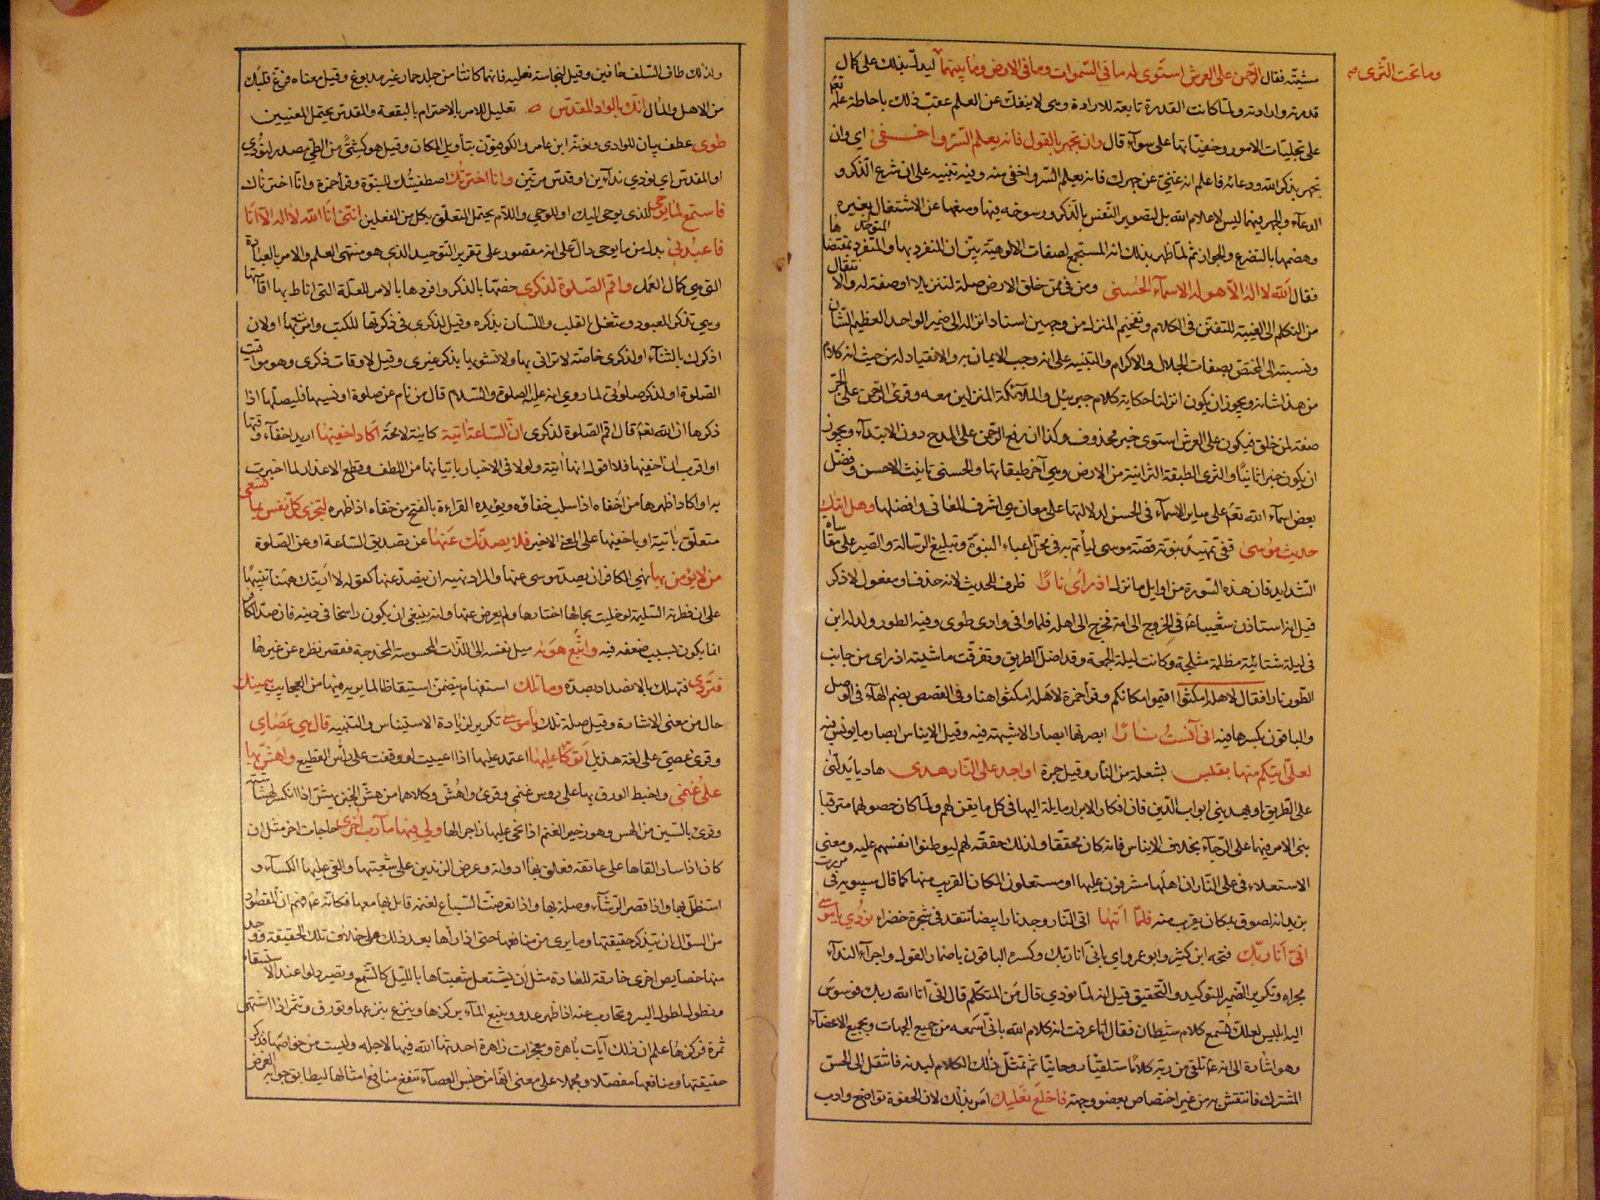 وما تحت الثرى صح
مشيّته فقال الرّحمن على العرش استوى له ما في السّموات وما في الارض وما بينهما ليدلّ بذلك على كمال
قدرته وارادته ولمّا كانت القدرة تابعة للارادة وهي لا ينفك عن العلم عقّب ذلك باحاطة علمه تعم
على تجليات الامور وخفيّاتها على سوآء قال وان تجهر بالقول فانه يعلم السّرّ واخفى اي وان
تجهر بذكر الله ودعائه فاعلم انه غنيّ عن جهرك فانه يعلم السّر واخفى منه وفيه تنبيه على ان شرع الذّكر و
الدعآء والجهر فيهما ليس لاعلام الله بل لتصوير النّفس بالذّكر ورسوخه فيها ومنعها عن الاشتغال بغيره
وهضمها بالتضرع والجوار ثم لمّا ظهر بذلك انه المستجمع لصفات الالوهيّة بيّن ان المتفرد بها والمتوحّد بمقتضاها
فقال الله لا اله الّا هو له الاسمآء الحسنى ومن في ممن خلق الارض صلة لتنزيلا او صفة له والانتقال
من التكلم الى الغيبة للتفنن في الكلام وتفخيم المنزل من وجهين اسناد انزاله الى ضمير الواحد العظيم الشّان
ونسبته الى المختص بصفات الجلال والاكرام والتنبيه على انه وجب الايمان به والانقياد له من حيث انه كلام
من هذا شانه ويجوز ان يكون انزلنا حكاية كلام جبرئيل والملآئكة النازلين معه وقرئ الرّحمن على الجرّ
صفة لمن خلق فيكون على العرش استوى خبر محذوف وكذا ان رفع الرّحمن على المدح دون الابتدآء ويجوز
ان يكون خبرا ثانيا والثرى الطبقة الترابية من الارض وهي آخر طبقاتها والحسنى تانيث الاحسن وفضل
بعض اسماء الله تعم على ساير الاسمآء في الحسن لدلالتها على معان هي اشرف المعاني وافضلها وهل اتيك
حديث موسى قفى تمهيد نبوّته قصّة موسى ليأتمّ به في تحمّل اعباء النبوّة وتبليغ الرّسالة والصّبر على مقاساة
الشدايد فان هذه السّورة من اوايل ما نزل اذ رأى نارًا ظرف للحديث لانه حدث او مفعول لاذكر
قيل انه استاذن شعيبا عم في الخروج الى امّه فخرج الى اهله فلما وافى وادى طوى وفيه الطور ولد له ابن
في ليلة شاتية مظلمة مثلجة وكانت ليلة الجمعة وقد اضلّ الطريق وتفرّقت ماشيته اذ راى من جانب
الطّور نارا فقال لاهله امكثوا اقيموا مكانكم وقرأ حمزة لاهله امكثوا هنا وفي القصص بضم الهآء في الوصل
والباقون بكسرها فيه انّي آنست نارًا ابصرتها ابصارا لا شبهة فيه وقيل الايناس ابصار ما يونس به
لعلّي اتيكم منها بقبس بشعلة من النار وقيل جمرة او اجد على النّار هدى هاديا يدلّني
على الطّريق او يهديني ابواب الدّين فان افكار الابرار مايلة اليها في كل ما يعنّ لهم ولمّا كان حصولهما مترقبا
بنى الامر فيهما على الرّجآء بخلاف الايناس فانه كان محقّقا ولذلك حققه لهم ليوطنوا انفسهم عليه ومعنى
الاستعلاء في على النّار ان اهلها مشرفون عليها او مستعلون المكان القريب منها كما قال سيبويه في مررت
بزيد انه لصوق بمكان يقرب منه فلمّا اتيها اتى النّار وجد نارا بيضآء تتقد في شجرة خضراء نودي يا موسى
انّي انا ربّك فتحه ابن كثير وابو عمرو اي باني انا ربك وكسره الباقون باضمار القول او اجراء الندآء
مجراه وتكرير الضّمير للتوكيد والتحقيق قيل انه لمّا نودي قال من المتكلّم قال انّي انا الله ربك فوسوس
اليه ابليس لعلك تسمع كلام شيطان فقال انا عرفت انه كلام الله بانّي اسمعه من جميع الجهات وبجميع الاعضآء
وهو اشارة الى انه عم تلقى من ربّه كلامًا تلقيّا روحانيّا ثم تمثّل ذلك الكلام لبدنه فانتقل الى الحسّ
المشترك فانتقش به من غير اختصاص بعضو وجهة فاخلع نعليك امر بذلك لان الحفوة تواضع وادب
ولذلك طاف السّلف حافين وقيل لنجاسة نعليه فانهما كانتا من جلد حمار غير مدبوغ وقيل معناه فرّغ قلبك
من الاهل والمال انّك بالواد المقدّس تعليل للامر بالاحترام بالبقعة والمقدس يحتمل المعنيين
طوى عطف بيان للوادي ونونه ابن عامر والكوفيون بتأويل المكان وقيل هو كثنى من الطي مصدر لنودي
او المقدس اي نودي ندآءين او قدس مرتين وانا اخترتك اصطفيتك للنبوة وقرأ حمزة وانّا اخترناك
فاستمع لما يوحى للذي يوحى اليك او للوحي واللام يحتمل التعلّق بكل من الفعلين انّني انا الله لا اله الّا انا
فاعبدني بدل من ما يوحى دالّ على انه مقصور على تقرير التوحيد الذي هو منتهى العلم والامر بالعبادة
التي هي كمال العمل واقم الصّلوة لذكري خصّها بالذكر وافردها بالامر للعلّة التي اناط بها اقامتها
وهي تذكر المعبود وشغل القلب واللسان بذكره وقيل لذكري لاني ذكرتها في الكتب وامرت بها او لان
اذكرك بالثنآء او لذكري خاصّة لا ترائي بها ولا تشوبها بذكر غيري وقيل لاوقات ذكري وهو مواقيت
الصّلوة او لذكر صلوتي لما روي انه عليه الصلوة والسّلام قال من نام عن صلوة او نسيها فليصلّها اذا
ذكرها ان الله تعم قال اقم الصّلوة لذكري انّ السّاعة اتية كاينة لا محالة اكاد اخفيها اريد اخفآء وقتها
او اقرب ان اخفيها فلا اقول انها اتية ولولا ما في الاخبار باتيانها من اللطف وقطع الاعذار لما اخبرت
به او اكاد اظهرها من اخفاه اذا سلب خفاءه ويؤيده القراءة بالفتح من خفاه اذا ظهره لتجزى كلّ نفس بما تسعى
متعلّق باتية او باخفيها على المعنى الاخير فلا يصدّنّك عنها عن تصديق السّاعة او عن الصّلوة
من لا يؤمن بها نهي الكافر ان يصدّ موسى عنها والمراد نهيه ان ينصدّ عنها كقوله لا ارينّك ههنا تنبيها
على ان فطرته السّليمة لو خليت بحالها اختارها ولم يعرض عنها وانه ينبغي ان يكون راسخا في دينه فان صدّ الكافر
انما يكون بسبب ضعفه فيه واتّبع هويه ميل نفسه الى اللذّات المحسوسة المخدجة فقصر نظره عن غيرها
فتردى فتهلك بالانصداد بصدّه وما تلك استفهام يتضمن استيقاظا لما يريه فيها من العجايب بيمينك
حال من معنى الاشارة وقيل صلة تلك يا موسى تكرير لزيادة الاستيناس والتنبيه قال هي عصاي
وقرئ عصيّ على لغة هذيل اتوكّأ عليها اعتمد عليها اذا اعييت او وقفت على رأس القطيع واهشّ بها
على غنمي واخبط الورق بها على رؤس غنمي وقرئ واهشّ وكلاهما من هشّ الخبز يهشّ اذا انكسر لهشاشته
وقرئ بالسّين من الهس وهو زجر الغنم اي انحي عليها زاجرا لها ولي فيها مآرب اخرى حاجات اخر مثل ان
كان اذا سار القاها على عاتقه فعلق بها ادواته وعرض الزندين على شعبتيها والقى عليها الكسآء و
استظلّ بها واذا قصر الرّشآء وصله بها واذا تعرضت السّباع لغنمه قاتل بها معها فكانّه عم فهم ان المقصود
من السؤال ان يتذكر حقيقتها وما يرى من منافعها حتى اذا رآها بعد ذلك على خلاف تلك الحقيقة ووجد
منها خصايص اخرى خارقة للعادة مثل ان يشتعل شعبتاها بالليل كالشّمع وتصيران دلوا عند الاستقاء
وتطول لطول البير وتحارب عنه اذا ظهر عدو وينبع المآء بركزها وينزع بنزعها وتورق وتثمر اذا اشتهى
ثمرة فركزها علم ان ذلك آيات باهرة ومعجزات زاهرة احدثها الله فيها لاجله وليست من خواصّها فذكر
حقيقتها ومنافعها مفصّلا ومجملا على معنى انها من جنس العصآء تنفع منافع امثالها ليطابق جوابه الغرض